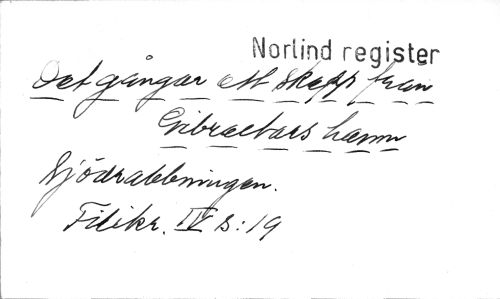 Norlind register
Det gångar ett skepp från
Gibraltars hamn
Sjödrabbningen.
Filikr. IV s: 19